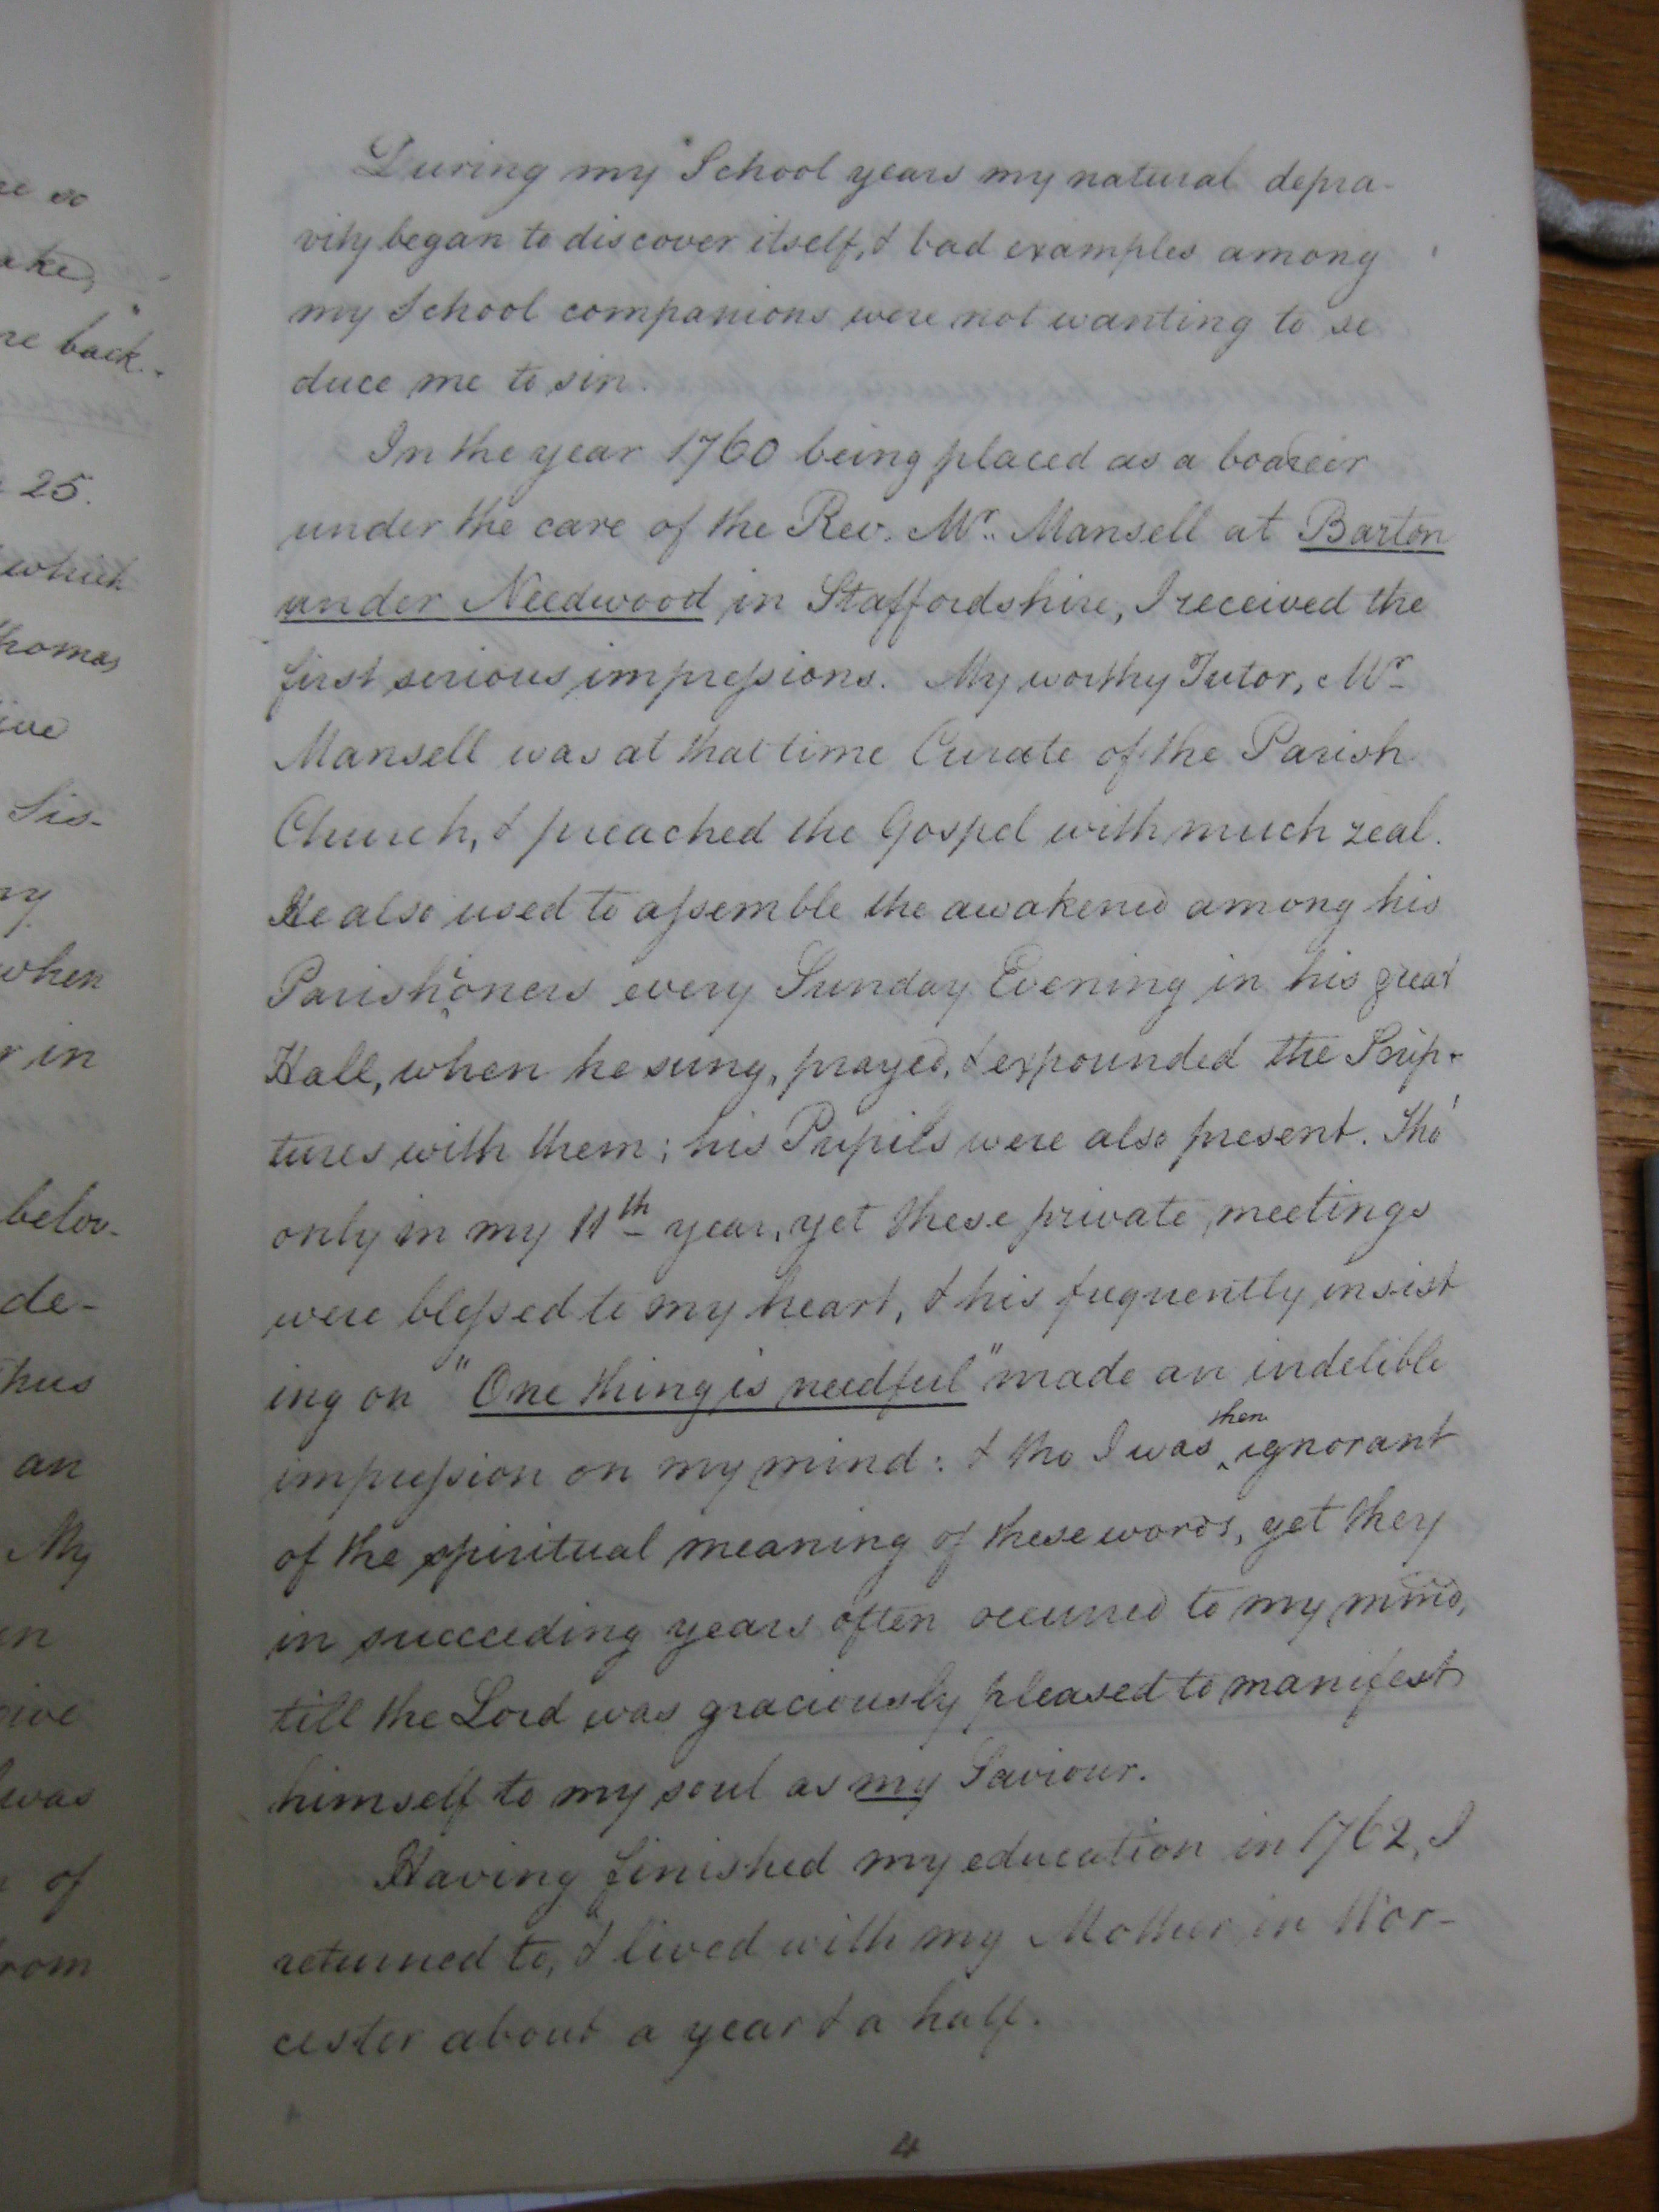 re so
ake,
re back.
25.
which
homas
ive
Sis-
ny
when
r in
belov-
de-
hus
an
My
en
give
was
of
rom
During my School years my natural depra-
vity began to discover itself, & bad examples among
my School companions were not wanting to se
duce me to sin.
In the year 1760 being placed as a
under the care of the Rev. Mr. Mansell at Barton
under Needwood in Staffordshire, I received the
first serious impressions. My worthy Tutor, Mr
Mansell was at that time Curate of the Parish
Church, & preached the Gospel with much zeal.
He also used to assemble the awakened among his
Parishioners every Sunday Evening in his great
Hall, when he sung, prayed, & expounded the Scrip-
tures with them; his Pupils were also present. Tho'
only in my 11th year, yet these private meetings
were blessed to my heart, & his frequently insist
ing on "One thing is needful" made an indelible
impression on my mind: & tho I was then ignorant
of the spiritual meaning of these words, yet they
in succeeding years often occurred to my mind,
till the Lord was graciously pleased to manifest
himself to my soul as my Saviour.
Having finished my education in 1762, I
returned to, & lived with my Mother in Wor-
cester about a year & a half.
4